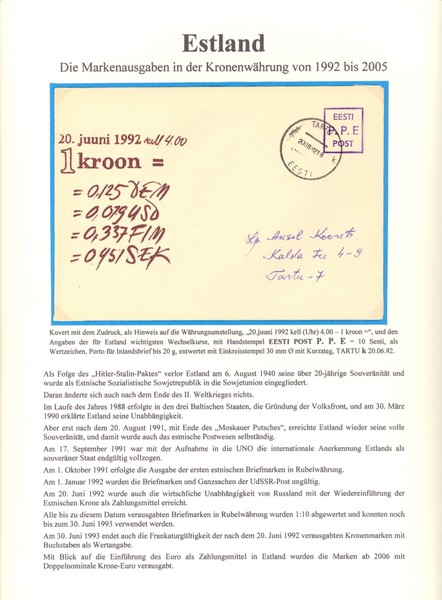 Estland
Die Markenausgaben in der Kronenwährung von 1992 bis 2005
20. juuni 1992 kell 4.00
1 kroon =
= 0,125 DEM
= 0,079 USD
= 0,337 FIM
= 0,451 SEK
EESTI
P. P. E
POST
TARTU
k
EESTI
Lp. Aksel
Kalda tee 4-9
Tartu-7
Kuvert mit dem Zudruck, als Hinweis auf die Währungsumstellung, „20.juuni 1992 kell (Uhr) 4.00 – 1 kroon =“, und den
Angaben der für Estland wichtigsten Wechselkurse, mit Handstempel EESTI POST P. P. E = 10 Senti, als
Wertzeichen, Porto für Inlandsbrief bis 20 g, entwertet mit Einkreisstempel 30 mm Ø mit Kurzsteg, TARTU k 20.06.92.
Als Folge des „Hitler-Stalin-Paktes“ verlor Estland am 6. August 1940 seine über 20-jährige Souveränität und
wurde als Estnische Sozialistische Sowjetrepublik in die Sowjetunion eingegliedert.
Daran änderte sich auch nach dem Ende des II. Weltkrieges nichts.
Im Laufe des Jahres 1988 erfolgte in den drei Baltischen Staaten, die Gründung der Volksfront, und am 30. März
1990 erklärte Estland seine Unabhängigkeit.
Aber erst nach dem 20. August 1991, mit Ende des „Moskauer Putsches“, erreichte Estland wieder seine volle
Souveränität, und damit wurde auch das estnische Postwesen selbständig.
Am 17. September 1991 war mit der Aufnahme in die UNO die internationale Anerkennung Estlands als
souveräner Staat endgültig vollzogen.
Am 1. Oktober 1991 erfolgte die Ausgabe der ersten estnischen Briefmarken in Rubelwährung.
Am 1. Januar 1992 wurden die Briefmarken und Ganzsachen der UdSSR-Post ungültig.
Am 20. Juni 1992 wurde auch die wirtschliche Unabhängigkeit von Russland mit der Wiedereinführung der
Estnischen Krone als Zahlungsmittel erreicht.
Alle bis zu diesem Datum verausgabten Briefmarken in Rubelwährung wurden 1:10 abgewertet und konnten noch
bis zum 30. Juni 1993 verwendet werden.
Am 30. Juni 1993 endet auch die Frankaturgültigkeit der nach dem 20. Juni 1992 verausgabten Kronenmarken mit
Buchstaben als Wertangabe.
Mit Blick auf die Einführung des Euro als Zahlungsmittel in Estland wurden die Marken ab 2006 mit
Doppelnominale Krone-Euro verausgabt.